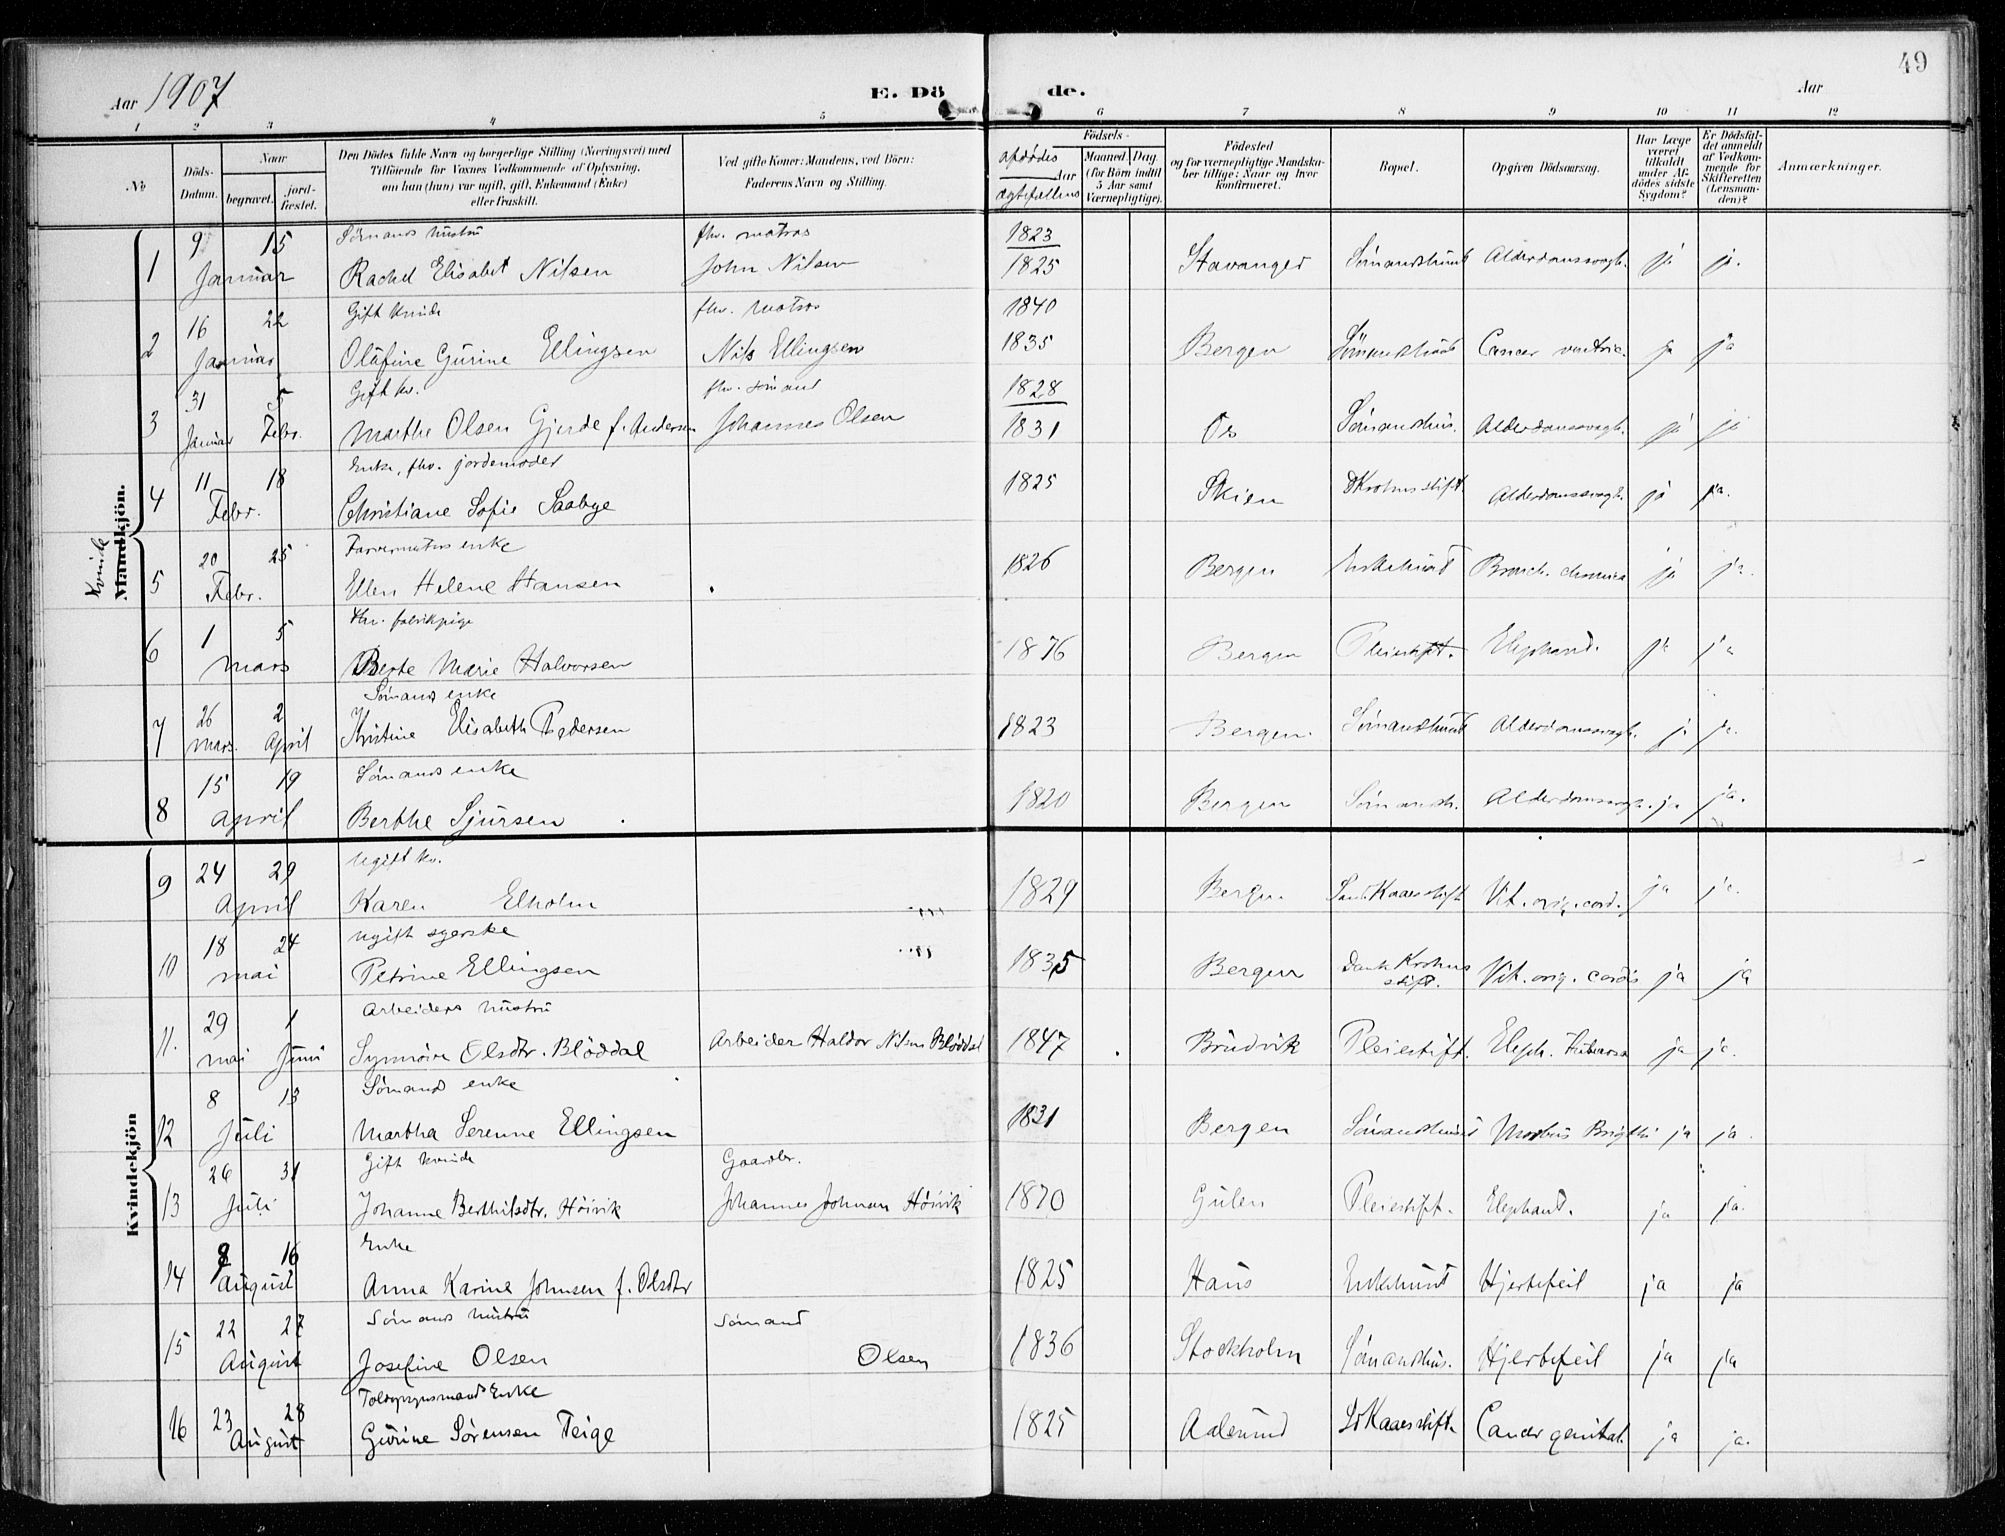 49
Aar 1907
E. Dö de.
Aar
1 2 3 4 5 6 7 8 9 10 11 12
No
Döds-Datum.
Naar begravet. jordfæstet.
Den Dödes fulde Navn og borgerlige Stilling (Næringsvei) med Tilföiende for Voxnes Vedkommende af Oplysning, om han (hun) var ugift, gift, Enkemand (Enke) eller fraskilt.
Ved gifte Koner: Mandens, ved Börn: Faderens Navn og Stilling.
Födsels-
afdødes Aar ægtefællens
Maaned. Dag. (for Börn indtil 5 Aar samt Værnepligtige).
Födested og for værnepligtige Mandskaber tillige: Naar og hvor konfirmeret.
Bopæl.
Opgiven Dödsaarsag.
Har Læge været tilkaldt under Afdödes sidste Sygdom?
Er Dödsfaldet anmeldt af Vedkommende for Skifteretten (Lensmanden)?
Anmærkninger.
Kvinde
Mandkjön.
Sömands hustru fhv. matros 1823
1 9 15 Januar Rachel Elisabet Nilsen John Nilsen 1825 Stavanger Sömandshuset Alderdomssvagh. ja ja.
Gift kvinde fhv. matros 1840
2 16 22 Januar Olufine Gurine Ellingsen Nils Ellingsen 1835 Bergen Sömandshuset Cancer ventric. ja ja
Gift kv. fhv. sömand 1828
3 31 Januar 5 Febr. Marthe Olsen Gjerde f. Andersen Johannes Olsen 1831 Os Sömandshus. Alderdomssvagh. ja ja
Enke, fhv. jordemoder
4 11 18 Febr. Christiane Sofie Saabye 1825 Skien DKrohns stift. Alderdomssvagh. ja ja.
Farvermesters enke
5 20 25 Febr. Ellen Helene Hansen 1826 Bergen Enkehuset Bronch. chronica ja ja.
fhv. fabrikpige
6 1 5 Mars Berte Marie Halvorsen 1876 Bergen Pleiestift. Elephand. ja ja
Sömands enke
7 26 Mars. 2 April Kristine Elisabeth Pedersen 1823 Bergen. Sömandshuset Alderdomssvagh. ja ja.
Sömands enke
8 15 19 April Berthe Sjursen 1820 Bergen Sömandsh. Alderdomssvagh. ja ja.
Kvindekjön
Ugift kv.
9 24 29 April Karen Elholm 1829 Bergen Vit. orig. cord. ja ja.
Ugift syerske
10 18 24 Mai Petrine Ellingsen 1835 Bergen Dankt Krohns stift. Vit. orig. cordis ja ja
Arbeiders hustru
11. 29 Mai 1 Juni Synnöve Olsdtr. Blöddal Arbeider Haldor Nilsen Blöddal 1847 Bruvik Pleiestift. Eleph. tuberosa ja ja.
Sömands enke
12 8 13 Juli Martha Serenne Ellingsen 1831 Bergen Sömandshuset Morbus Brigthi ja ja.
Gift kvinde Gaardbr.
13 26 31 Juli Johanne Berthilsdtr. Höivik Johannes Johnsen Höivik 1870 Gulen Pleiestift. Elephand. ja ja.
Enke
14 9 16 August Anna Karine Johnsen f. Olsdtr 1825 Haus Enkehuset Hjertefeil ja ja
Sömands hustru Sömand
15 22 27 August Josefine Olsen Olsen 1836 Stockholm Sömandshus. Hjertefeil ja ja
Toldopsynsmands Enke
16 23 28 August Gurine Sörensen Teige 1825 Aalesund Cancer genital. ja ja.